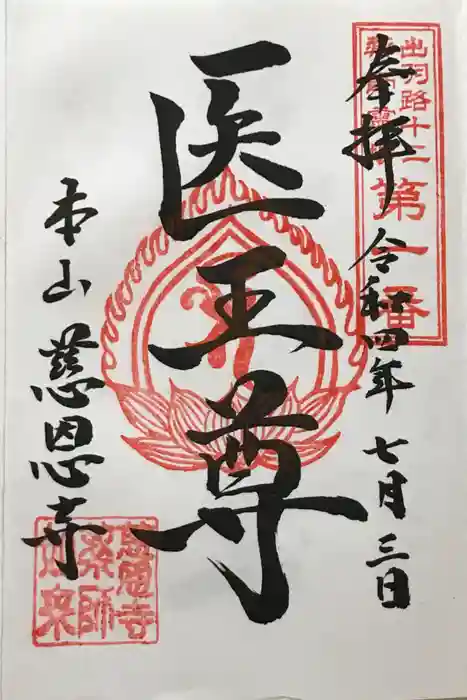 奉拝 令和四年七月三日
出羽路十二
薬師霊場
第一番
医王尊
本山 慈恩寺
慈恩寺
薬師
如来